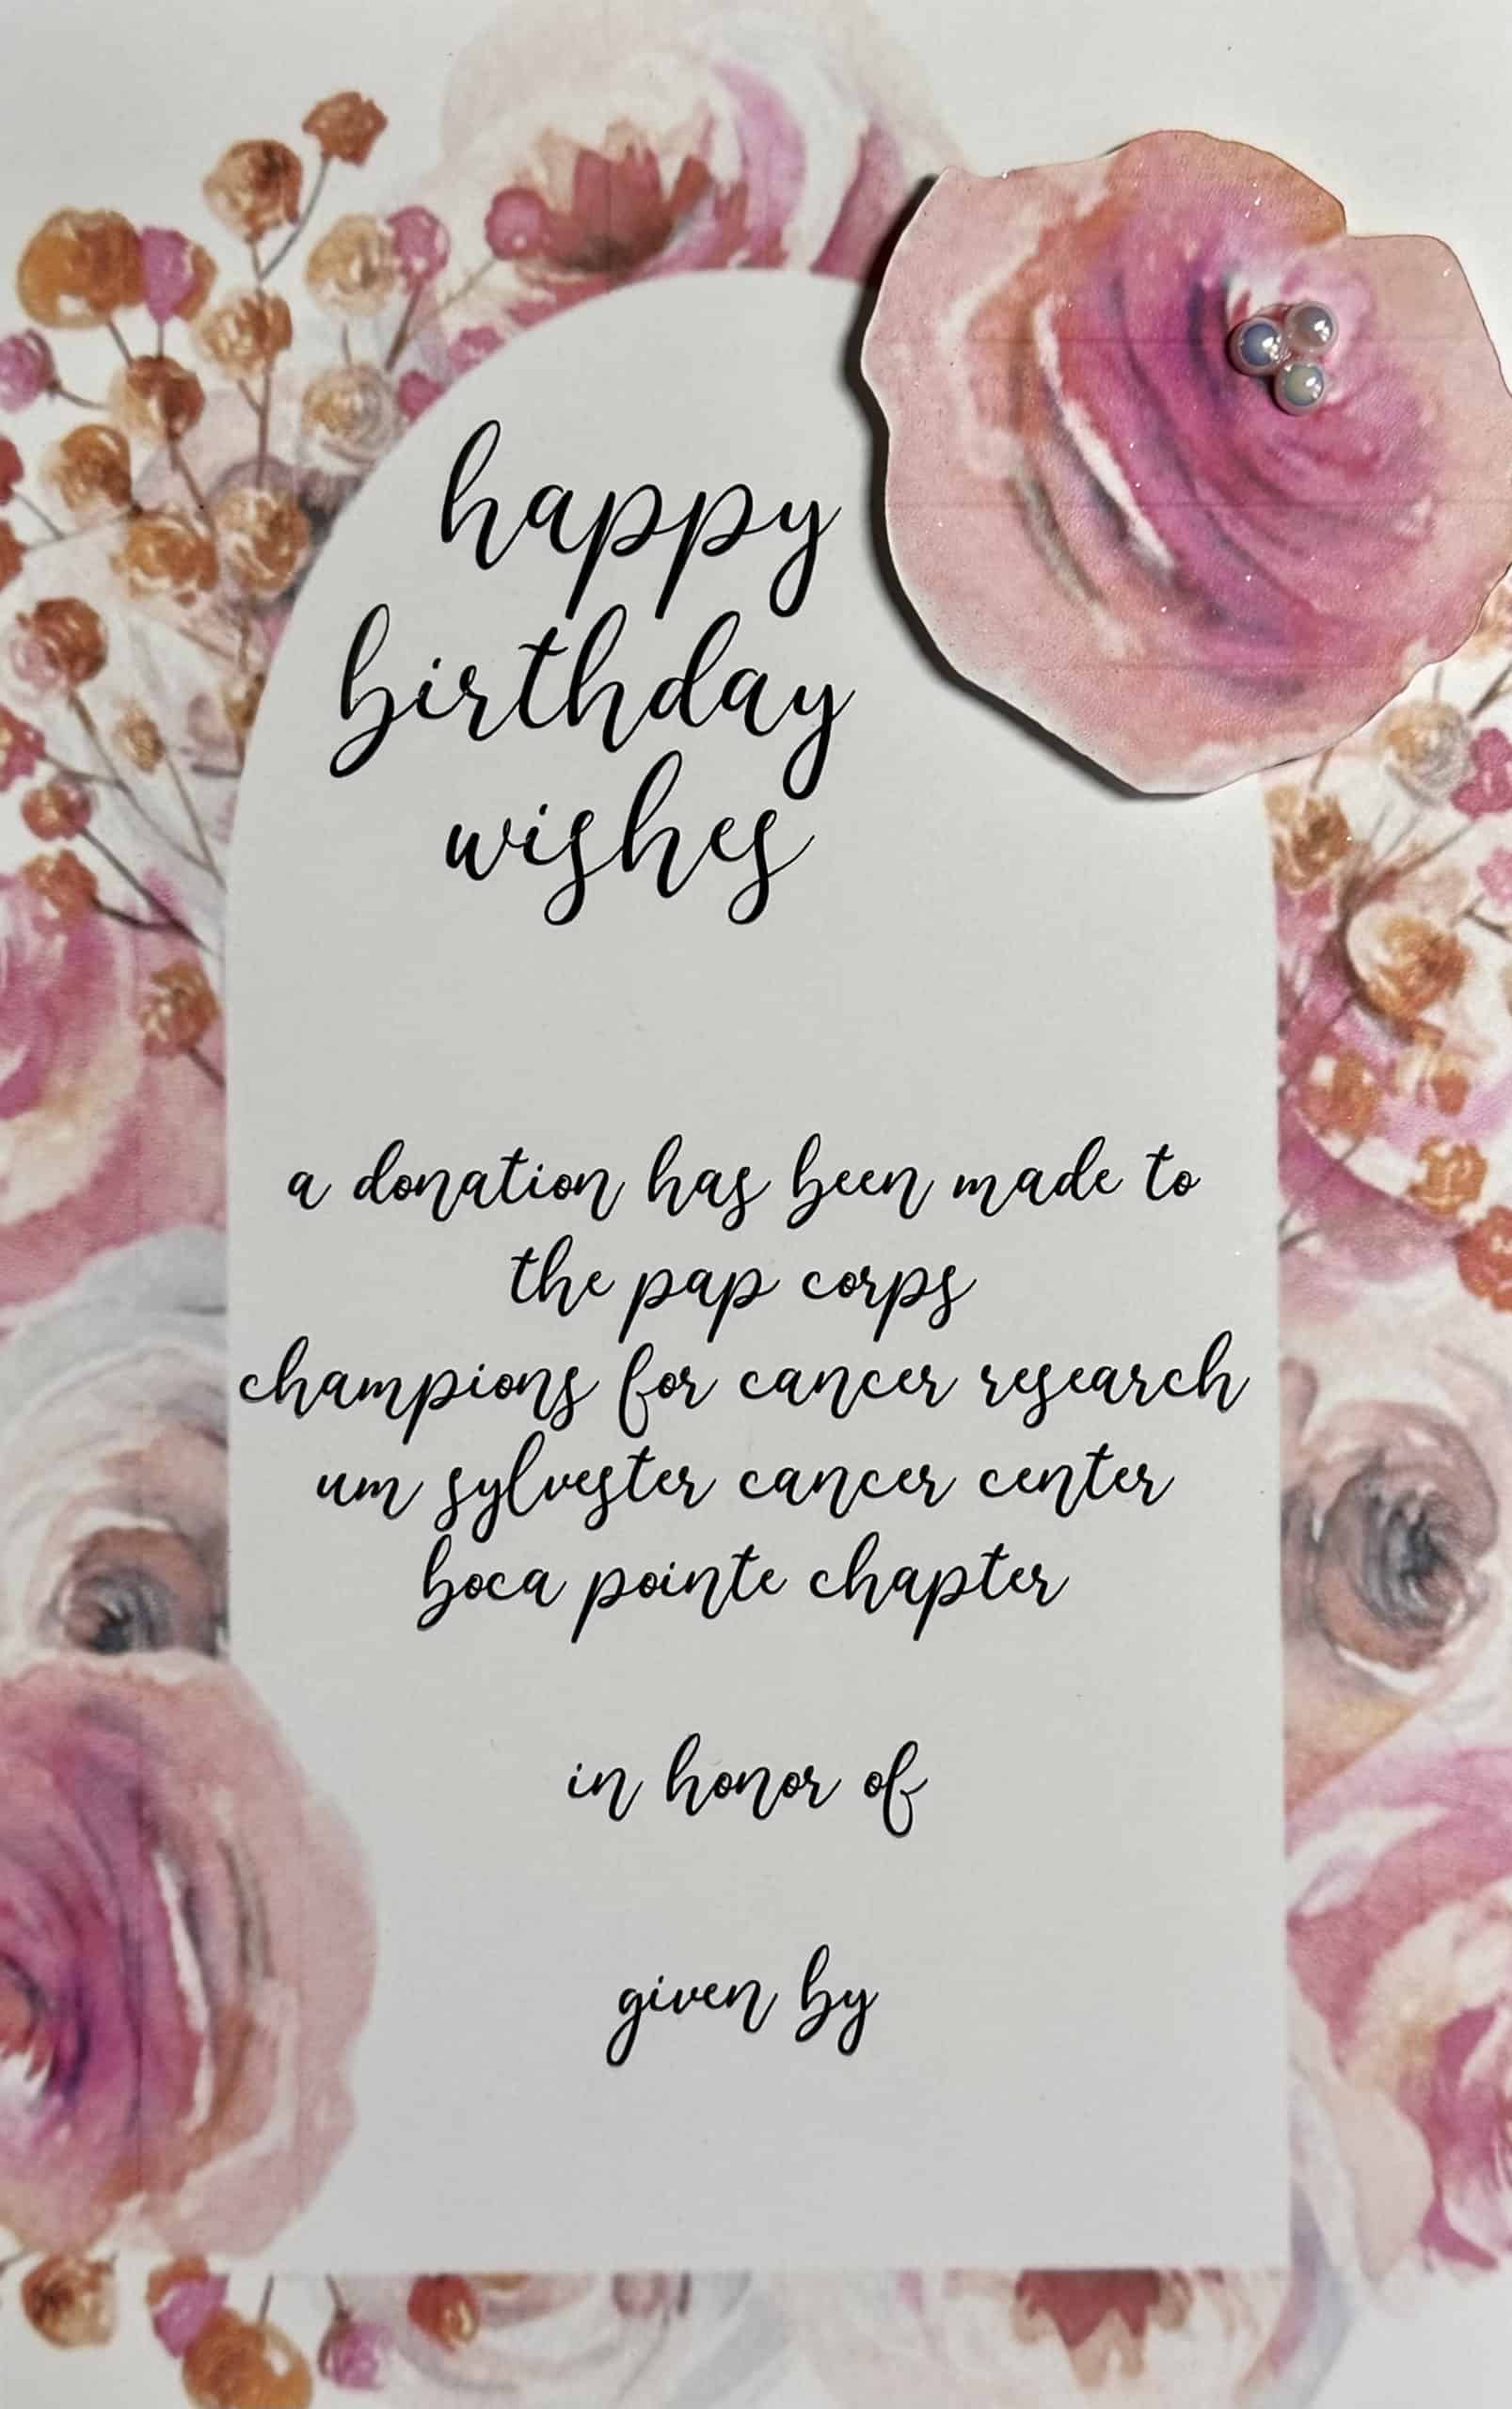 happy
birthday
wishes
a donation has been made to
the pap corps
champions for cancer research
um sylvester cancer center
boca pointe chapter
in honor of
given by